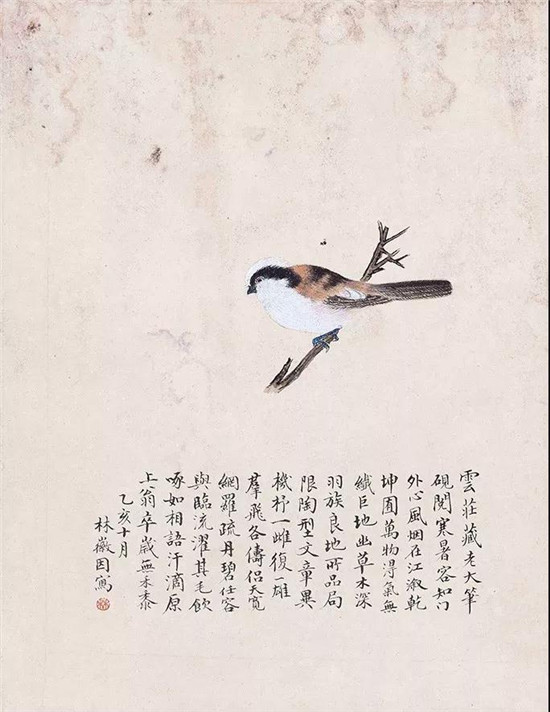 雲莊藏老大筆
硯閱寒暑容知门
外心風烟在江溆乾
坤囿萬物得氣無
纖巨地幽草木深
羽族良地所品局
限陶型文章異
機杼一雌復一雄
羣飛各儔侶天寬
網羅疏丹碧任容
與臨流濯其毛飲
啄如相語汗滴原
上翁卒歲無禾黍
乙亥十月
林徽因寫